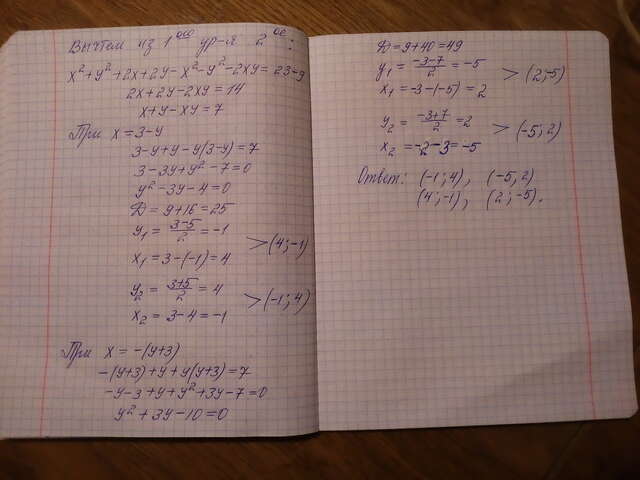 Вычтем из 1ого ур-я 2ое:
x²+y²+2x+2y-x²-y²-2xy=23-9
2x+2y-2xy=14
x+y-xy=7
При x=3-y
3-y+y-y(3-y)=7
3-3y+y²-7=0
y²-3y-4=0
D=9+16=25
y₁=(3-5)/2=-1
x₁=3-(-1)=4
>(4;-1)
y₂=(3+5)/2=4
x₂=3-4=-1
>(-1;4)
При x=-(y+3)
-(y+3)+y+y(y+3)=7
-y-3+y+y²+3y-7=0
y²+3y-10=0
D=9+40=49
y₁=(-3-7)/2=-5
x₁=-3-(-5)=2
>(2;-5)
y₂=(-3+7)/2=2
x₂=-2-3=-5
>(-5;2)
Ответ: (-1;4), (-5,2)
(4;-1), (2;-5).